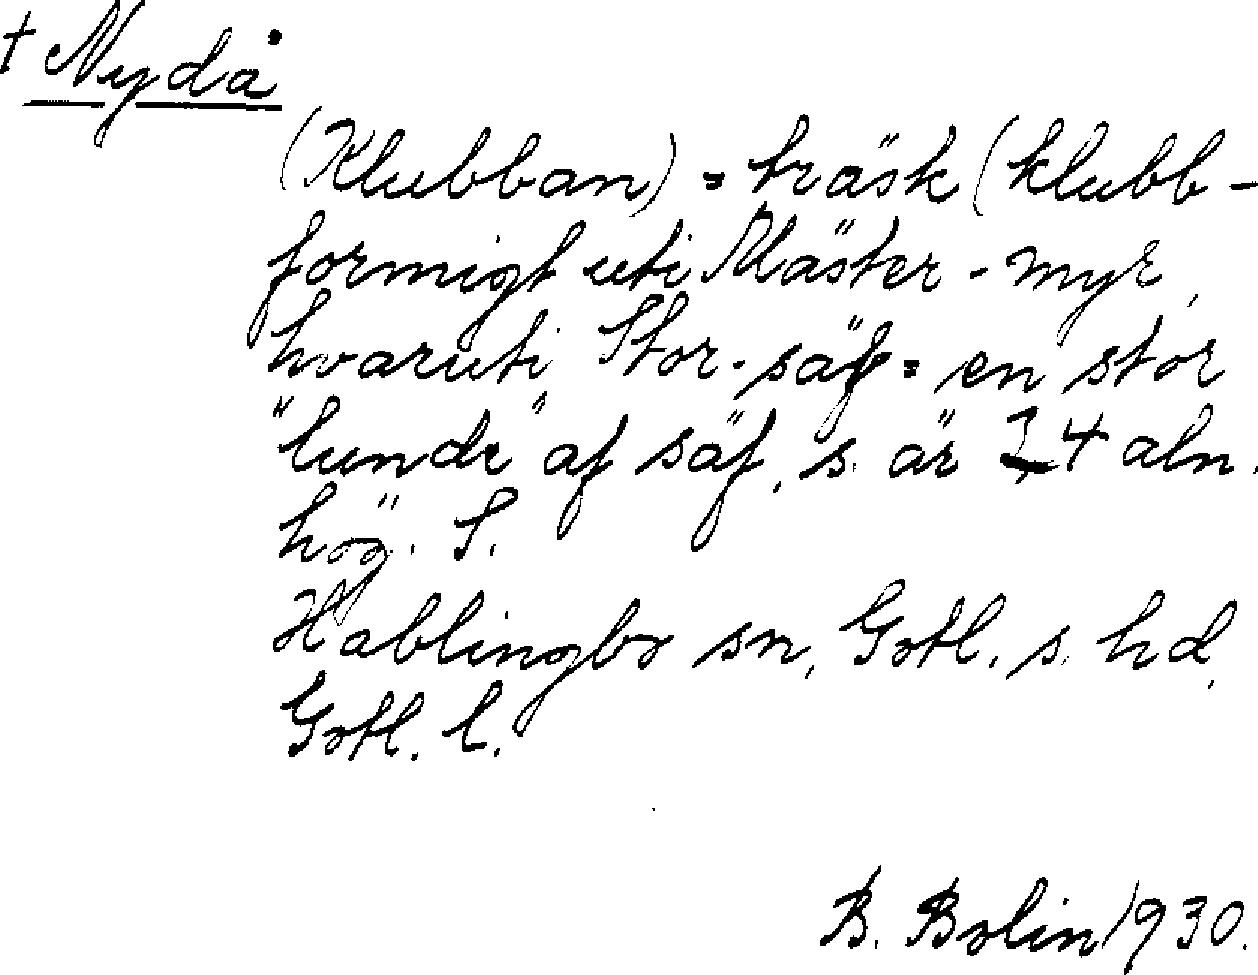 † Nydå
(Klubban) = träsk (klubb-
formigt uti Mäster-myr,
hvaruti Stor-säf = en stor
"lunde" af säf, s. är 3,4 aln.
hög. S.
Hablingbo sn, Gotl. s. hd,
Gotl. l.
B. Bolin 1930.